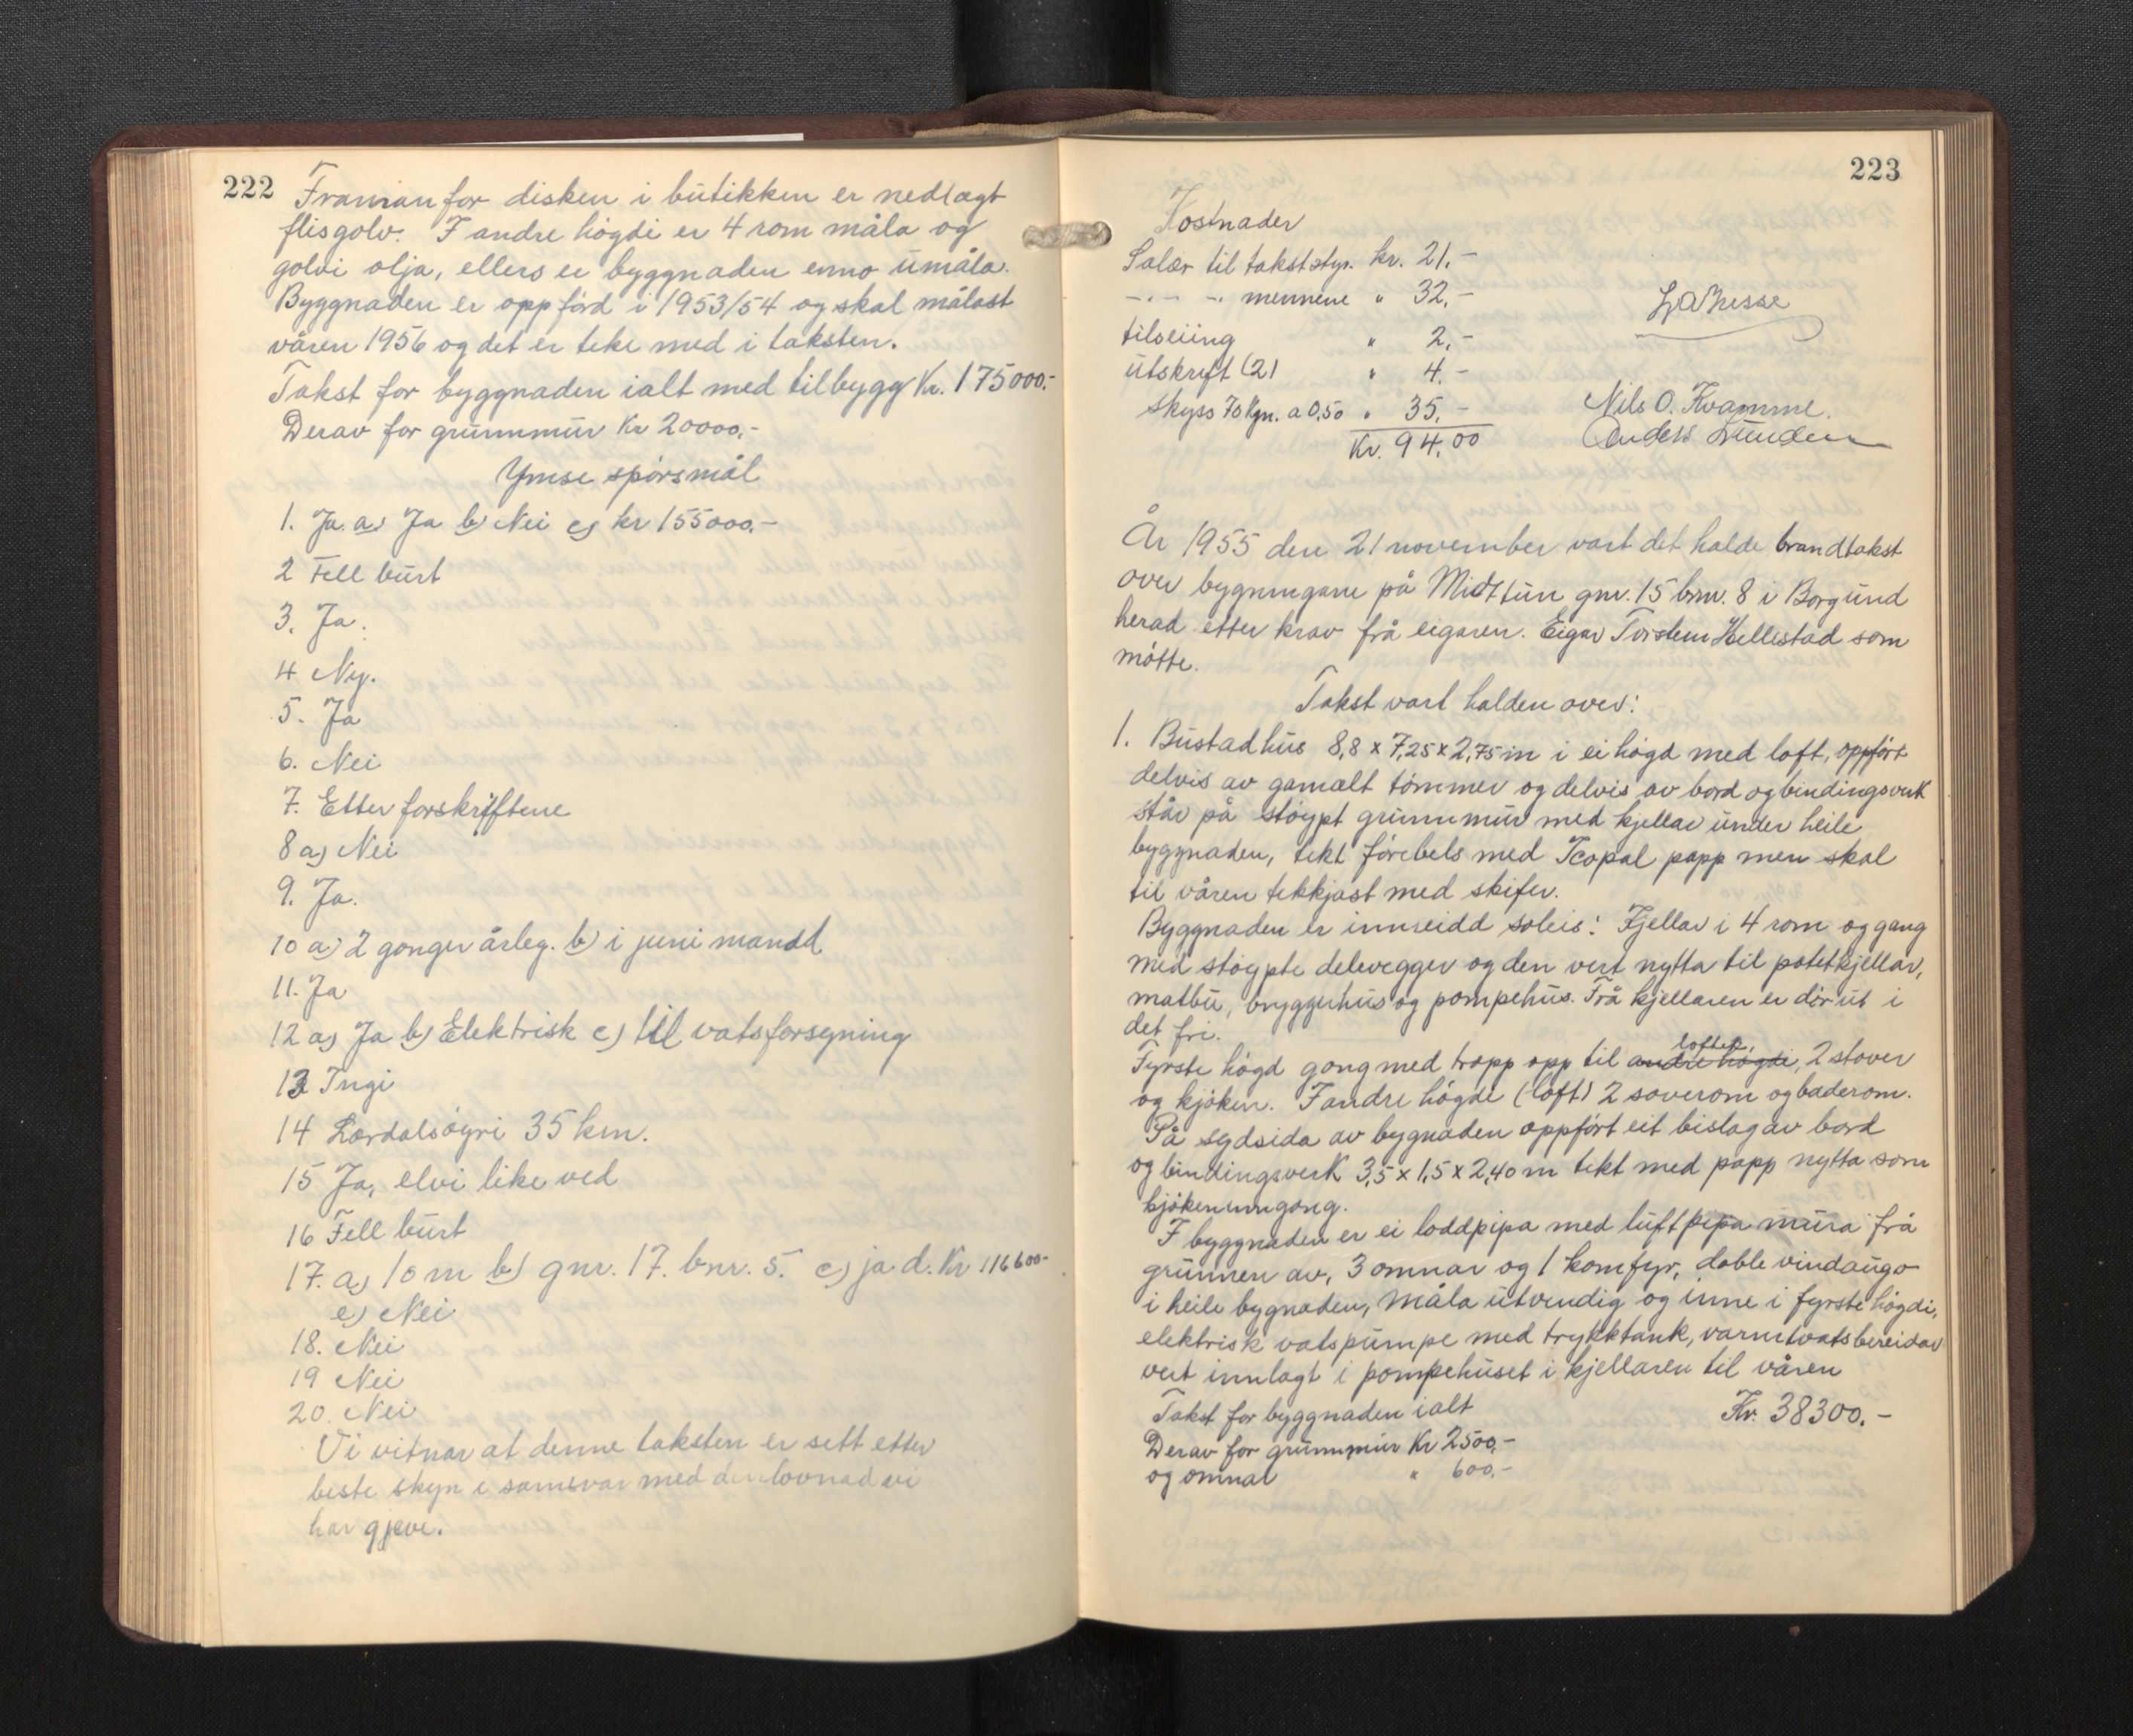 222
Framan for disken i butikken er nedlagt
flisgolv. I andre högdi er 4 rom måla og
golvi olja, ellers er byggnaden enno umåla.
Byggnaden er oppförd i 1953/54 og skal målast
våren 1956 og det er teke med i taksten.
Takst for byggnaden ialt med tilbygg Kr. 175000.-
Derav for grunnmur Kr 20000,-
Ymse spörsmål
1. Ja. a) Ja b) Nei c) kr 155000.-
2 Fell burt
3. Ja.
4 Ny.
5. Ja
6. Nei
7. Etter forskriftene
8 a) Nei
9. Ja.
10 a) 2 gonger årleg. b) i juni manad
11. Ja
12 a) Ja b) Elektrisk c) til vatsforsyning
13 Ingi
14 Lærdalsöyri 35 km.
15 Ja, elvi like ved
16 Fell burt
17. a) 10 m b) gnr. 17. bnr. 5. c) ja d. Kr 116600-
e) Nei
18. Nei
19 Nei
20. Nei
Vi vitnar at denne taksten er sett etter
beste skyn i samsvar med den lovnad vi
har gjeve.
223
Kostnader
Salær til takststyr. kr. 21.-
-.- -. mennene " 32.-
tilseiing " 2.-
utskrift (2) " 4.-
Skyss 70 kgm. a 0,50 " 35.-
Kr. 94.00
Nils O. Kvamme.
Anders
År 1955 den 21 november vart det halde brandtakst
over bygningane på Midttun gnr. 15 bnr. 8 i Borgund
herad etter krav frå eigaren. Eigar Torstein Hellestad som
mötte.
Takst vart halden over:
1. Bustadhus 8,8 x 7,25 x 2,75 m i ei högd med loft, oppfört
delvis av gamalt tömmer og delvis av bord og bindingsverk
står på stöypt grunnmur med kjellar under heile
byggnaden, tekt förebels med Icopal papp men skal
til våren tekkjast med skifer.
Byggnaden er innreidd soleis: Kjellar i 4 rom og gang
med stöypte delevegger og den vert nytta til potetkjellar,
matbu, bryggerhus og pompehus. Frå kjellaren er dör ut i
det fri.
loftet,
Fyrste högd gong med tropp opp til andre högdi, 2 stover
og kjöken. I andre högde (loft) 2 soverom og baderom.
På sydsida av bygnaden oppfört eit bislag av bord
og bindingsverk 3,5 x 1,5 x 2,40 m tekt med papp nytta som
kjökeninngong.
I byggnaden er ei loddpipa med luftpipa mura frå
grunnen av, 3 omnar og 1 komfyr, doble vindaugo
i heile bygnaden, måla utvendig og inne i fyrste högdi,
elektrisk vatspumpe med trykktank, varmtvatsbereidar
vert innlagt i pompehuset i kjellaren til våren
Takst for byggnaden ialt Kr. 38300.-
Derav for grunnmur Kr 2500,-
og omnar " 600.-